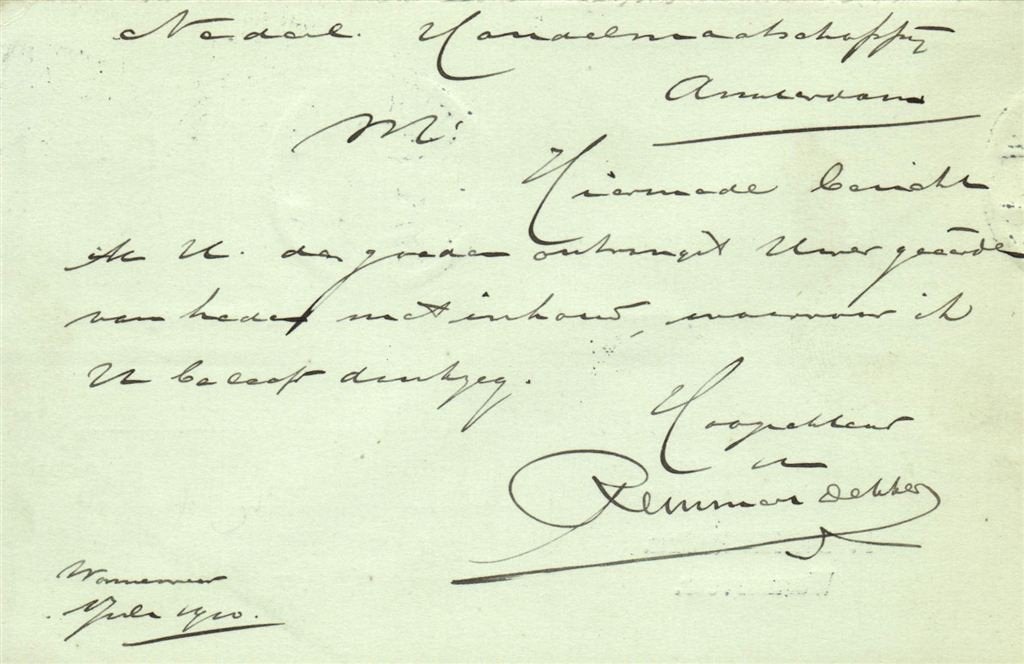 Nederl. Handelmaatschappij
Amsterdam
M:
Hiermede bericht
ik U. de goede ontvangst Uwer geëerde
van heden met inhoud, waarvoor ik
U beleefd dankzeg.
Hoogachtend
Remmert Dekker
Wormerveer
Juli 1910.